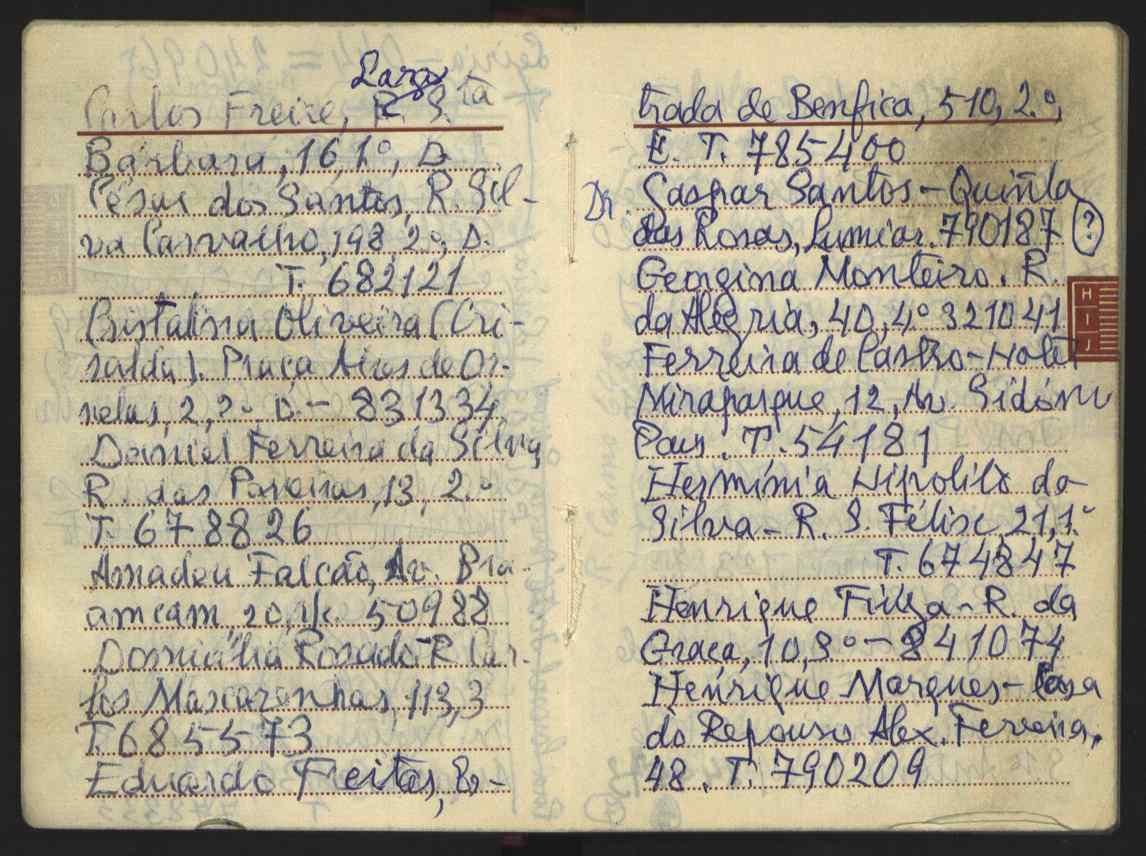 Largo
Carlos Freire, R. S.ta
Bárbara, 16, 1.º, D.
César dos Santos, R. Sil-
va Carvalho, 198 2.º, D.
T. 682121
Cristalina Oliveira (Cri-
salda). Praça Aires de Or-
nelas, 2, 2.º D. - 831334
Daniel Ferreira da Silva
R. das Pereiras, 13, 2.º
T. 678826
Amadeu Falcão, Av. Bra-
amcam, 20, r/c. 50988
Domicília Rosado - R. Car-
los Mascarenhas, 113, 3
T. 685573
Eduardo Freitas, Es-
trada de Benfica, 510, 2.º,
E. T. 785400
Dr. Gaspar Santos - Quinta
das Rosas, Lumiar. 790187 (?)
Georgina Monteiro. R.
da Alegria, 40, 4.º 321041
Ferreira de Castro - Hotel
Miraparque, 12, Av. Sidónio
Pais. T. 54181
Hermínia Hipólito da
Silva - R. S. Félix, 21, 1.º
T. 674847
Henrique - R. da
Graça, 10, 3.º - 841074
Henrique Marques - Casa
do Repouso Alex. Ferreira,
48. T. 790209
H
I
J